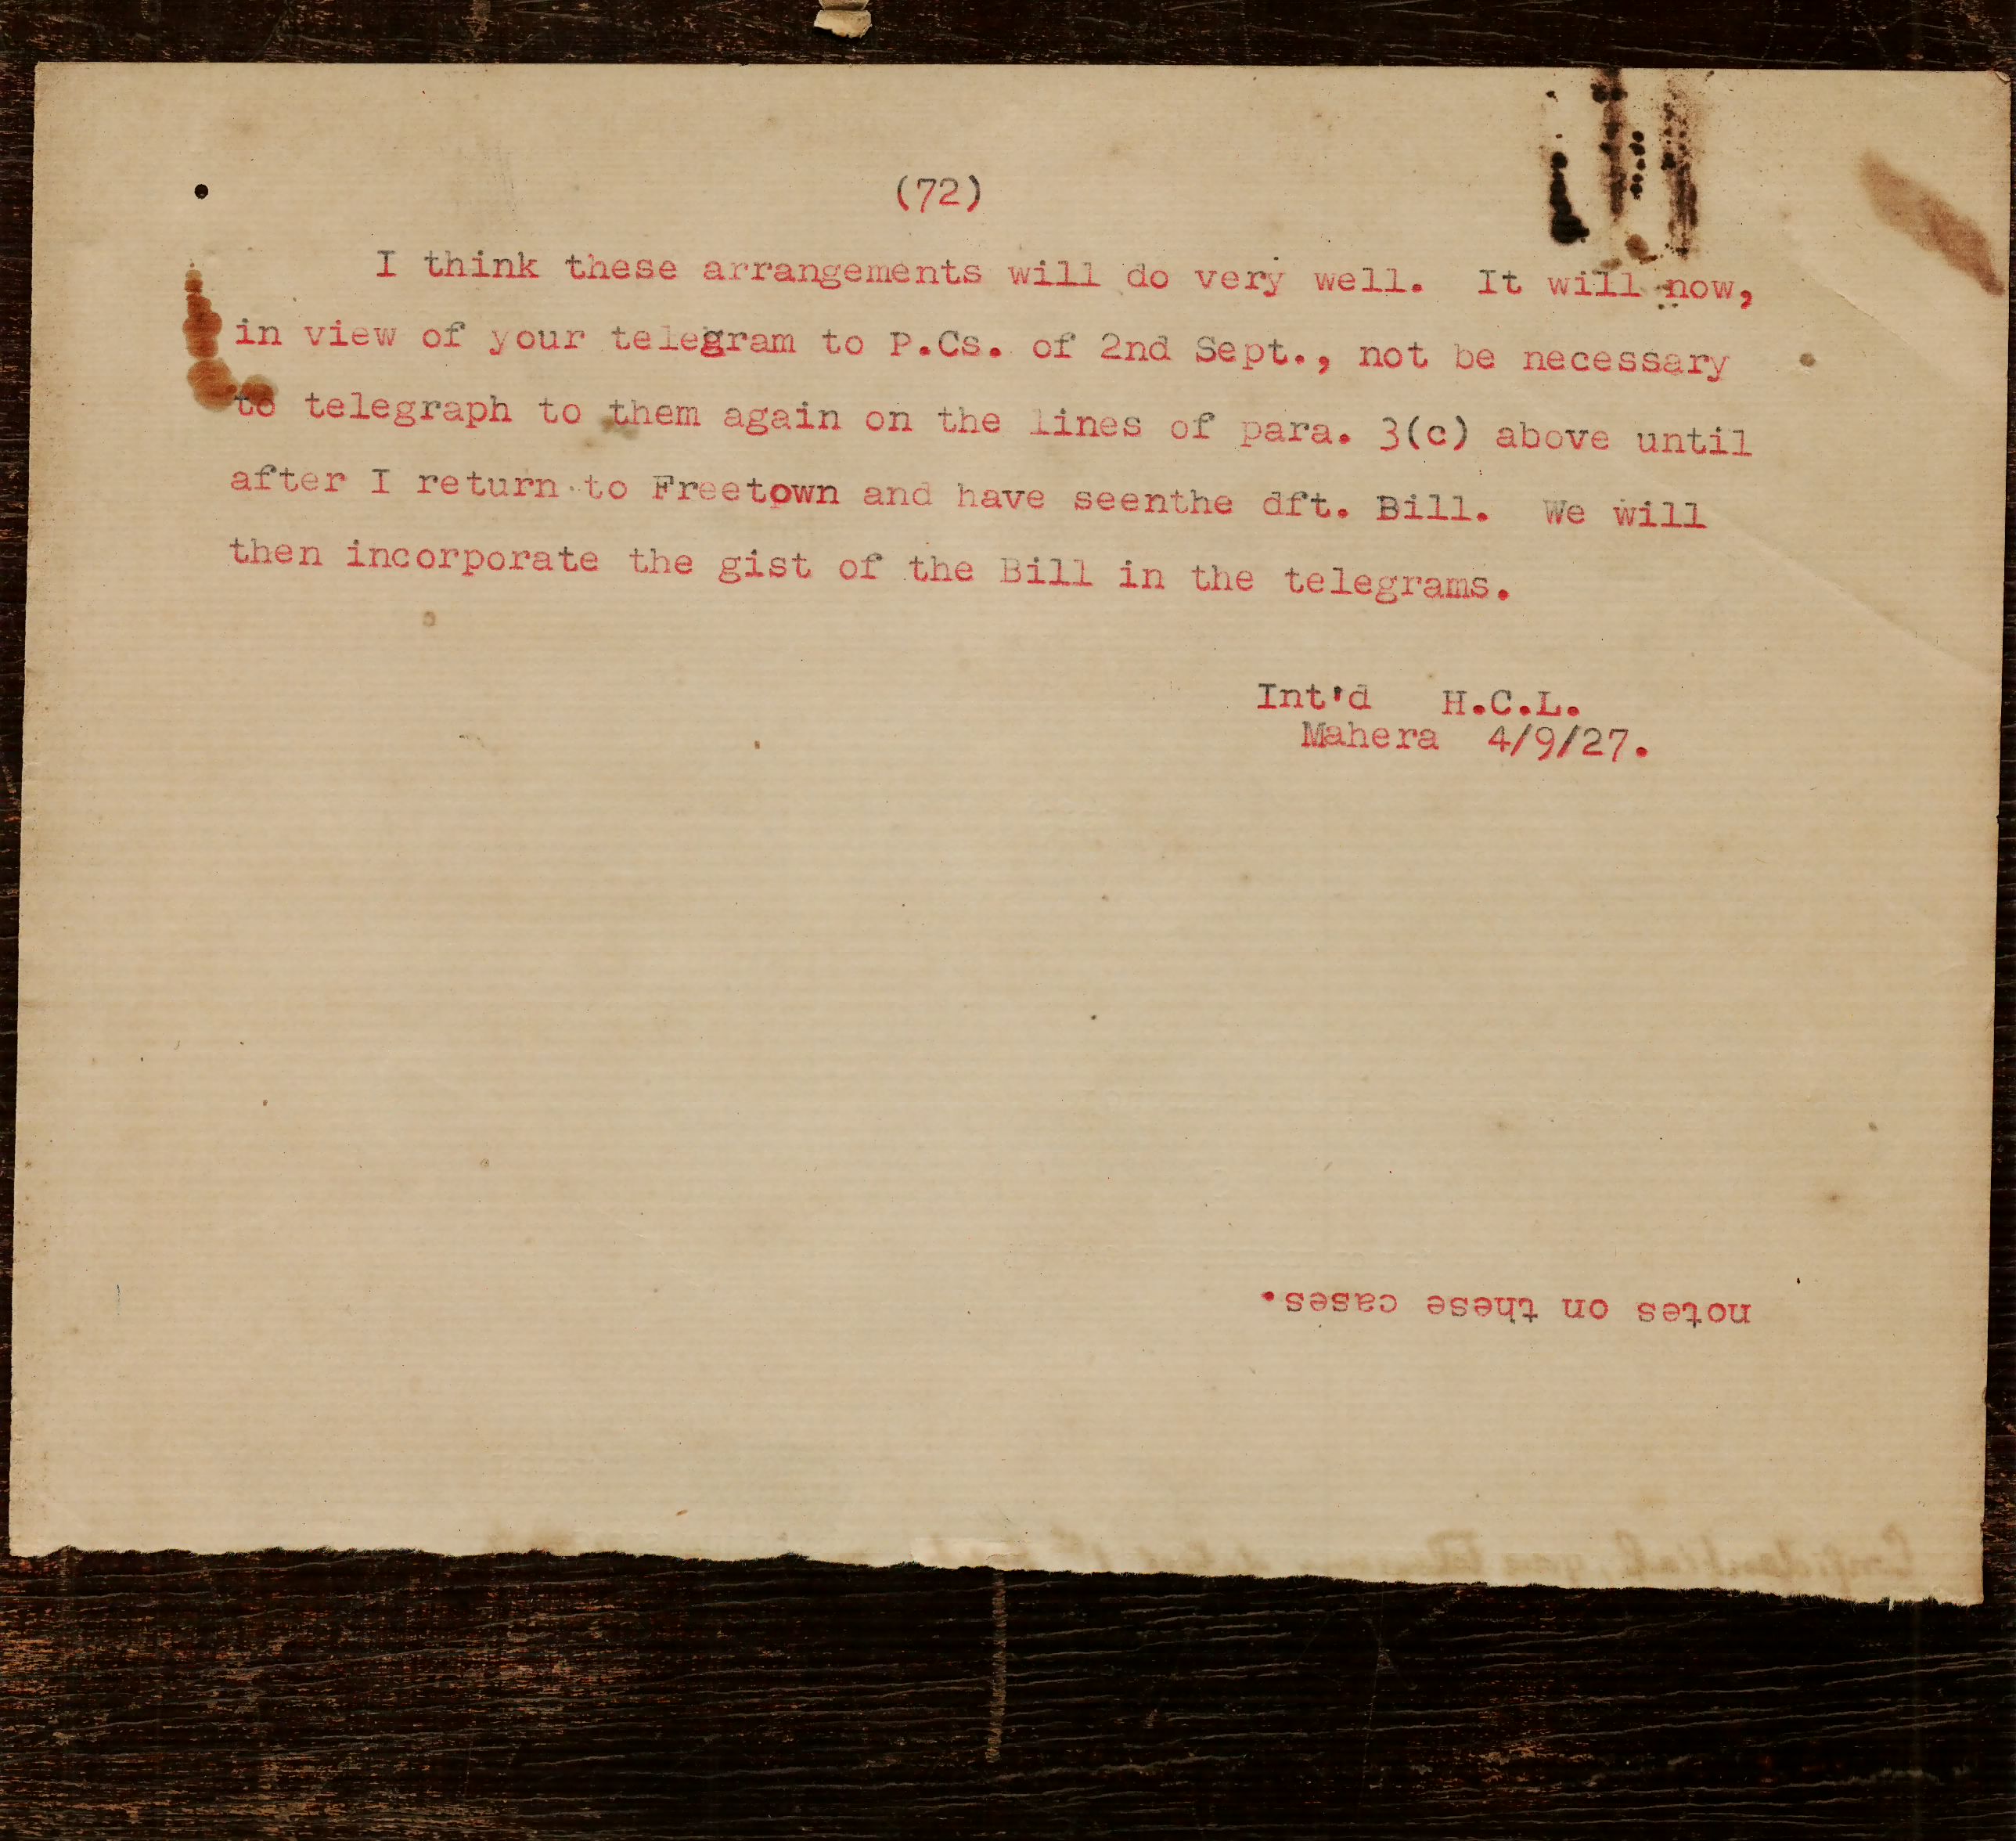 (72)
I think these arrangements will do very well. It will now,
in view of your telegram to P.Cs. of 2nd Sept., not be necessary
to telegraph to them again on the lines of para. 3(c) above until
after I return to Freetown and have seenthe dft. Bill. We will
then incorporate the gist of the Bill in the telegrams.
Int'd H.C.L.
Mahera 4/9/27.
notes on these cases.